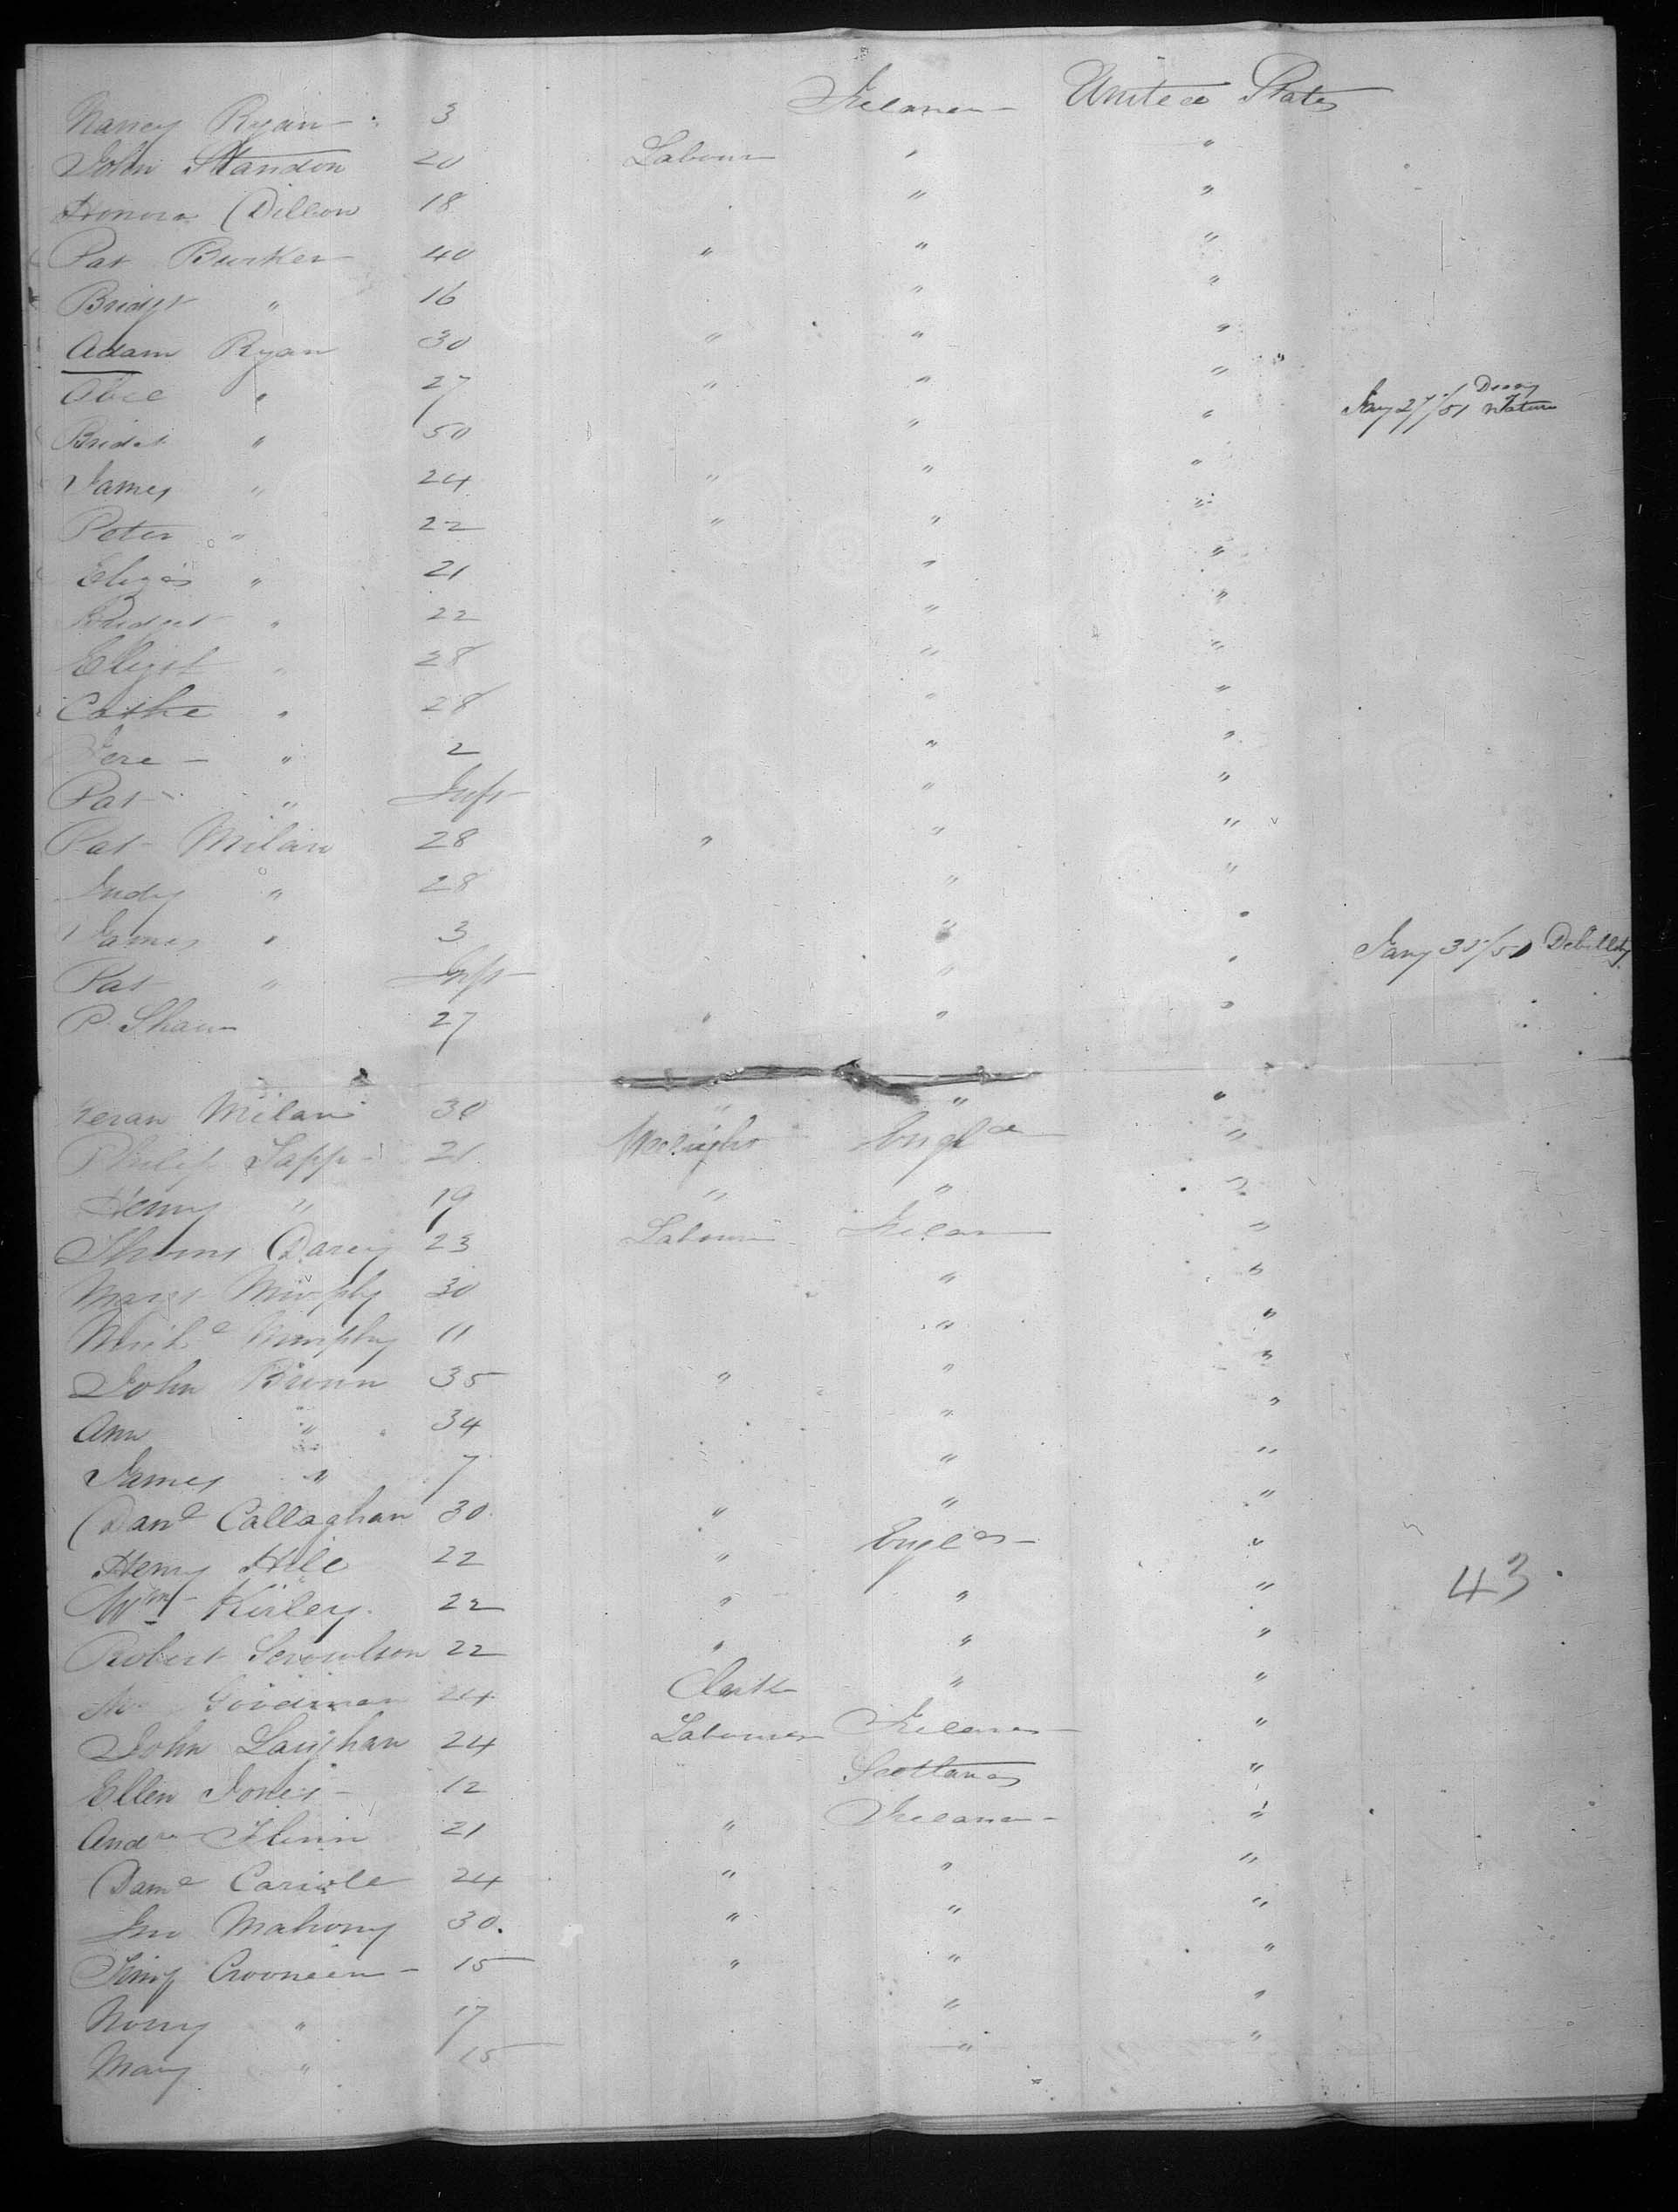 Nancy Ryan 3 Ireland United States
John Standon 20 Labour " "
Honora Dillon 18 " "
Pat Burke 40 " " "
Bridgt " 16 " "
Adam Ryan 30 " " "
" 27 " " " Jany 27/51 Decay Nature
Bridgt " 50 " "
James " 24 " " "
Peter " 22 " " "
Eliza " 21 " "
Bridget " 22 " "
Elizt " 28 " "
Cathe " 28 " "
Jere " 2 " "
Pat " Inft " "
Pat Milan 28 " " "
Judy " 28 " "
James " 3 " " Jany 31/51 Debility
Pat " Inft " "
P. Shaw 27 " " "
Keran Milan 30 " " "
Philip Sapp 21 Engld "
Henry " 19 " " "
Thoms Darcy 23 Labour Ireland "
Margt Murphy 30 " "
Michl Murphy 11 " "
John Brown 35 " " "
Ann " 34 " "
James " 7 " "
Danl Callaghan 30 " " "
Henry Hill 22 " Engld "
Wm Kirley 22 " " " 43
Robert 22 " " "
Goodman 24 Clerk " "
John Laughan 24 Labourer Ireland "
Ellen Jones 12 Scotland "
Andw Flinn 21 " Ireland "
Danl Carisle 24 " " "
Jno Mahony 30 " " "
15 " " "
Nory " 17 " "
Mary " 15 " "